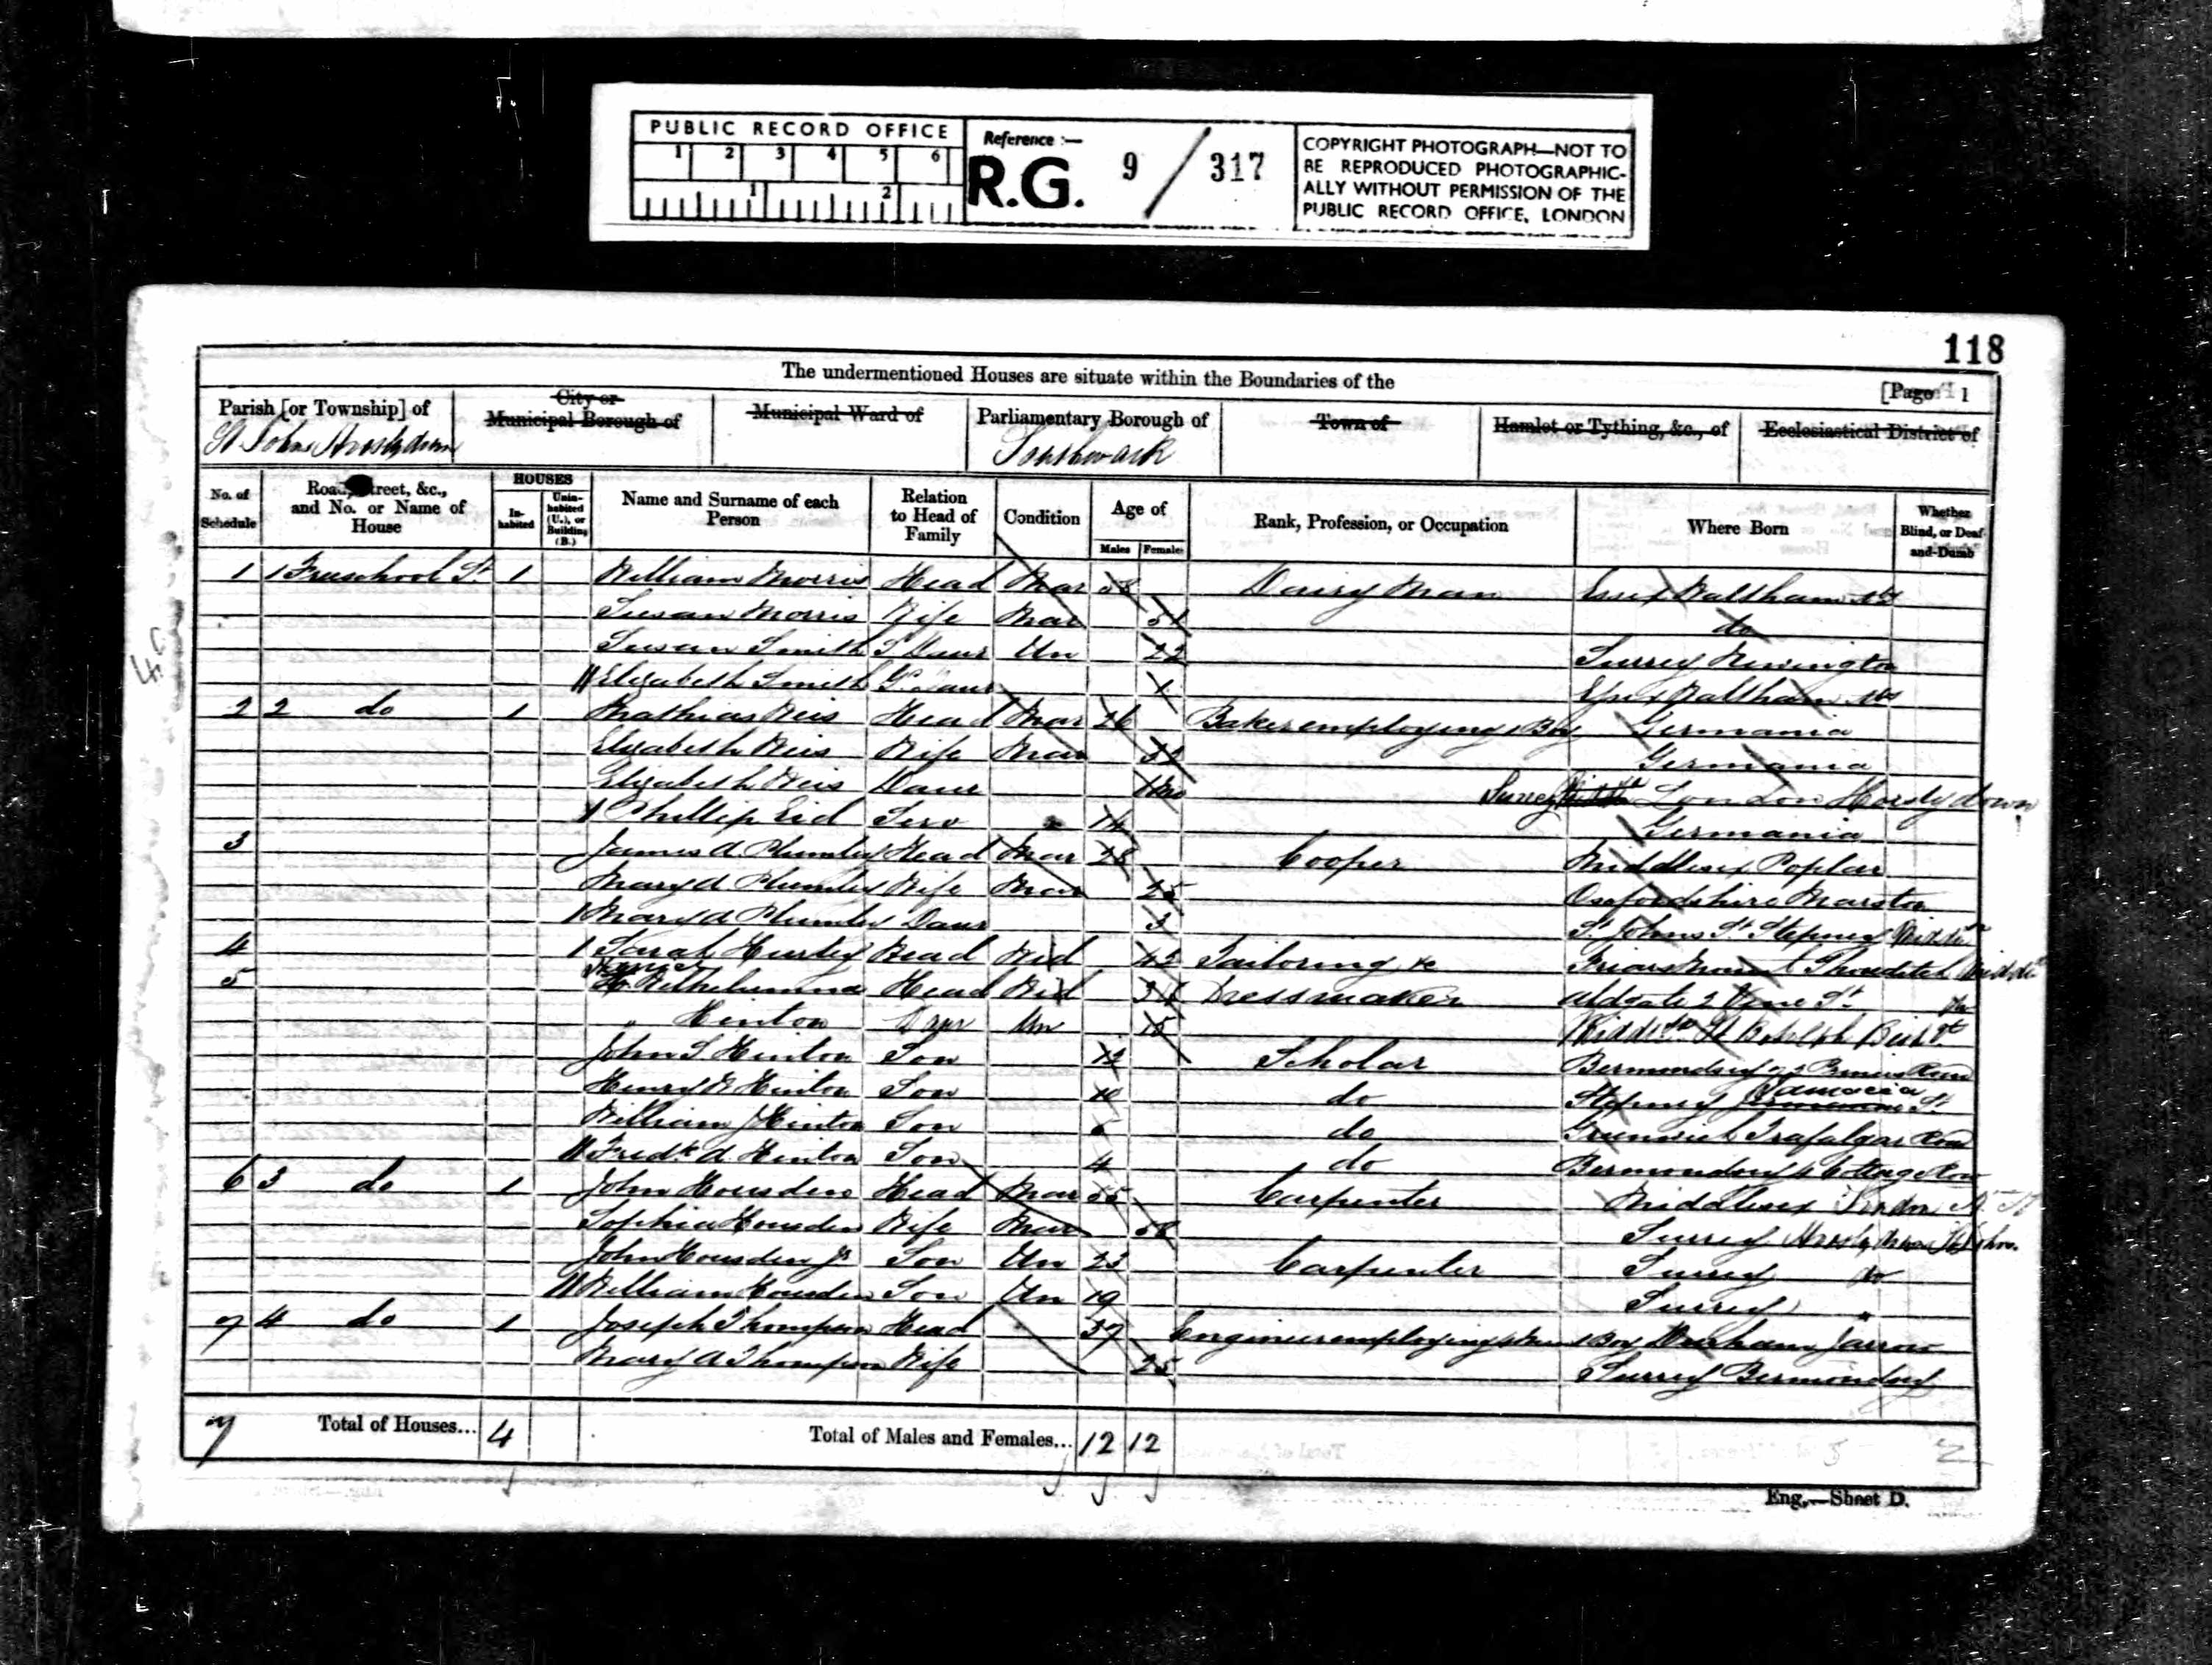 PUBLIC RECORD OFFICE
1 2 3 4 5 6
1 2
Reference :—
R.G. 9 / 317
COPYRIGHT PHOTOGRAPH—NOT TO
BE REPRODUCED PHOTOGRAPHIC-
ALLY WITHOUT PERMISSION OF THE
PUBLIC RECORD OFFICE, LONDON
118
The undermentioned Houses are situate within the Boundaries of the
[Page 1
Parish [or Township] of
St Johns Horslydown
City or
Municipal Borough of
Municipal Ward of
Parliamentary Borough of
Southwark
Town of
Hamlet or Tything, &c., of
Ecclesiastical District of
No. of Schedule
Road, Street, &c., and No. or Name of House
HOUSES
In-habited
Unin-habited (U.), or Building (B.)
Name and Surname of each Person
Relation to Head of Family
Condition
Age of
Males Females
Rank, Profession, or Occupation
Where Born
Whether Blind, or Deaf-and-Dumb
1 1 Freeschool St 1 William Morris Head Mar 58 Dairy Man Essex Waltham
Susan Morris Wife Mar 51 do
Susan Smith Daur Un 22 Surrey Newington
Elizabeth Smith Gd Daur 1 Essex Waltham
2 2 do 1 Mathias Weis Head Mar 26 Baker employing 1 Boy Germania
Elizabeth Weis Wife Mar 32 Germania
Elizabeth Weis Daur Surrey London Horslydown
Phillip Eid Serv 14 Germania
3 James A. Plumley Head Mar 28 Cooper Middlesex Poplar
Mary A Plumley Wife Mar 25 Oxfordshire Marston
Mary A Plumley Daur 3 St Johns St Stepney Middx
4 Sarah Hurley Head Wid 42 Tailoring &c Friars Mount Shoreditch Middx
5 Wilhelmina Head Wid Dressmaker Aldgate 2 Vine St do
" Hinton Daur Un 15 Middx St Botolph
John S. Hinton Son 12 Scholar Bermondsey
Henry W Hinton Son 10 do Stepney Jamacia St
William J Hinton Son do Greenwich Trafalgar Road
Fredk A. Hinton Son 4 do Bermondsey Cottage Row
6 3 do 1 John Housden Head Mar 55 Carpenter Middlesex London
Sophia Housden Wife Mar 58 Surrey
John Housden Jr Son Un 23 Carpenter Surrey do
William Housden Son Un 19 Surrey "
7 4 do 1 Joseph Thompson Head 37 Engineer employing 1 Boy Durham Jarrow
Mary A Thompson Wife 25 Surrey Bermondsey
7 Total of Houses... 4 Total of Males and Females... 12 12
Eng.—Sheet D.